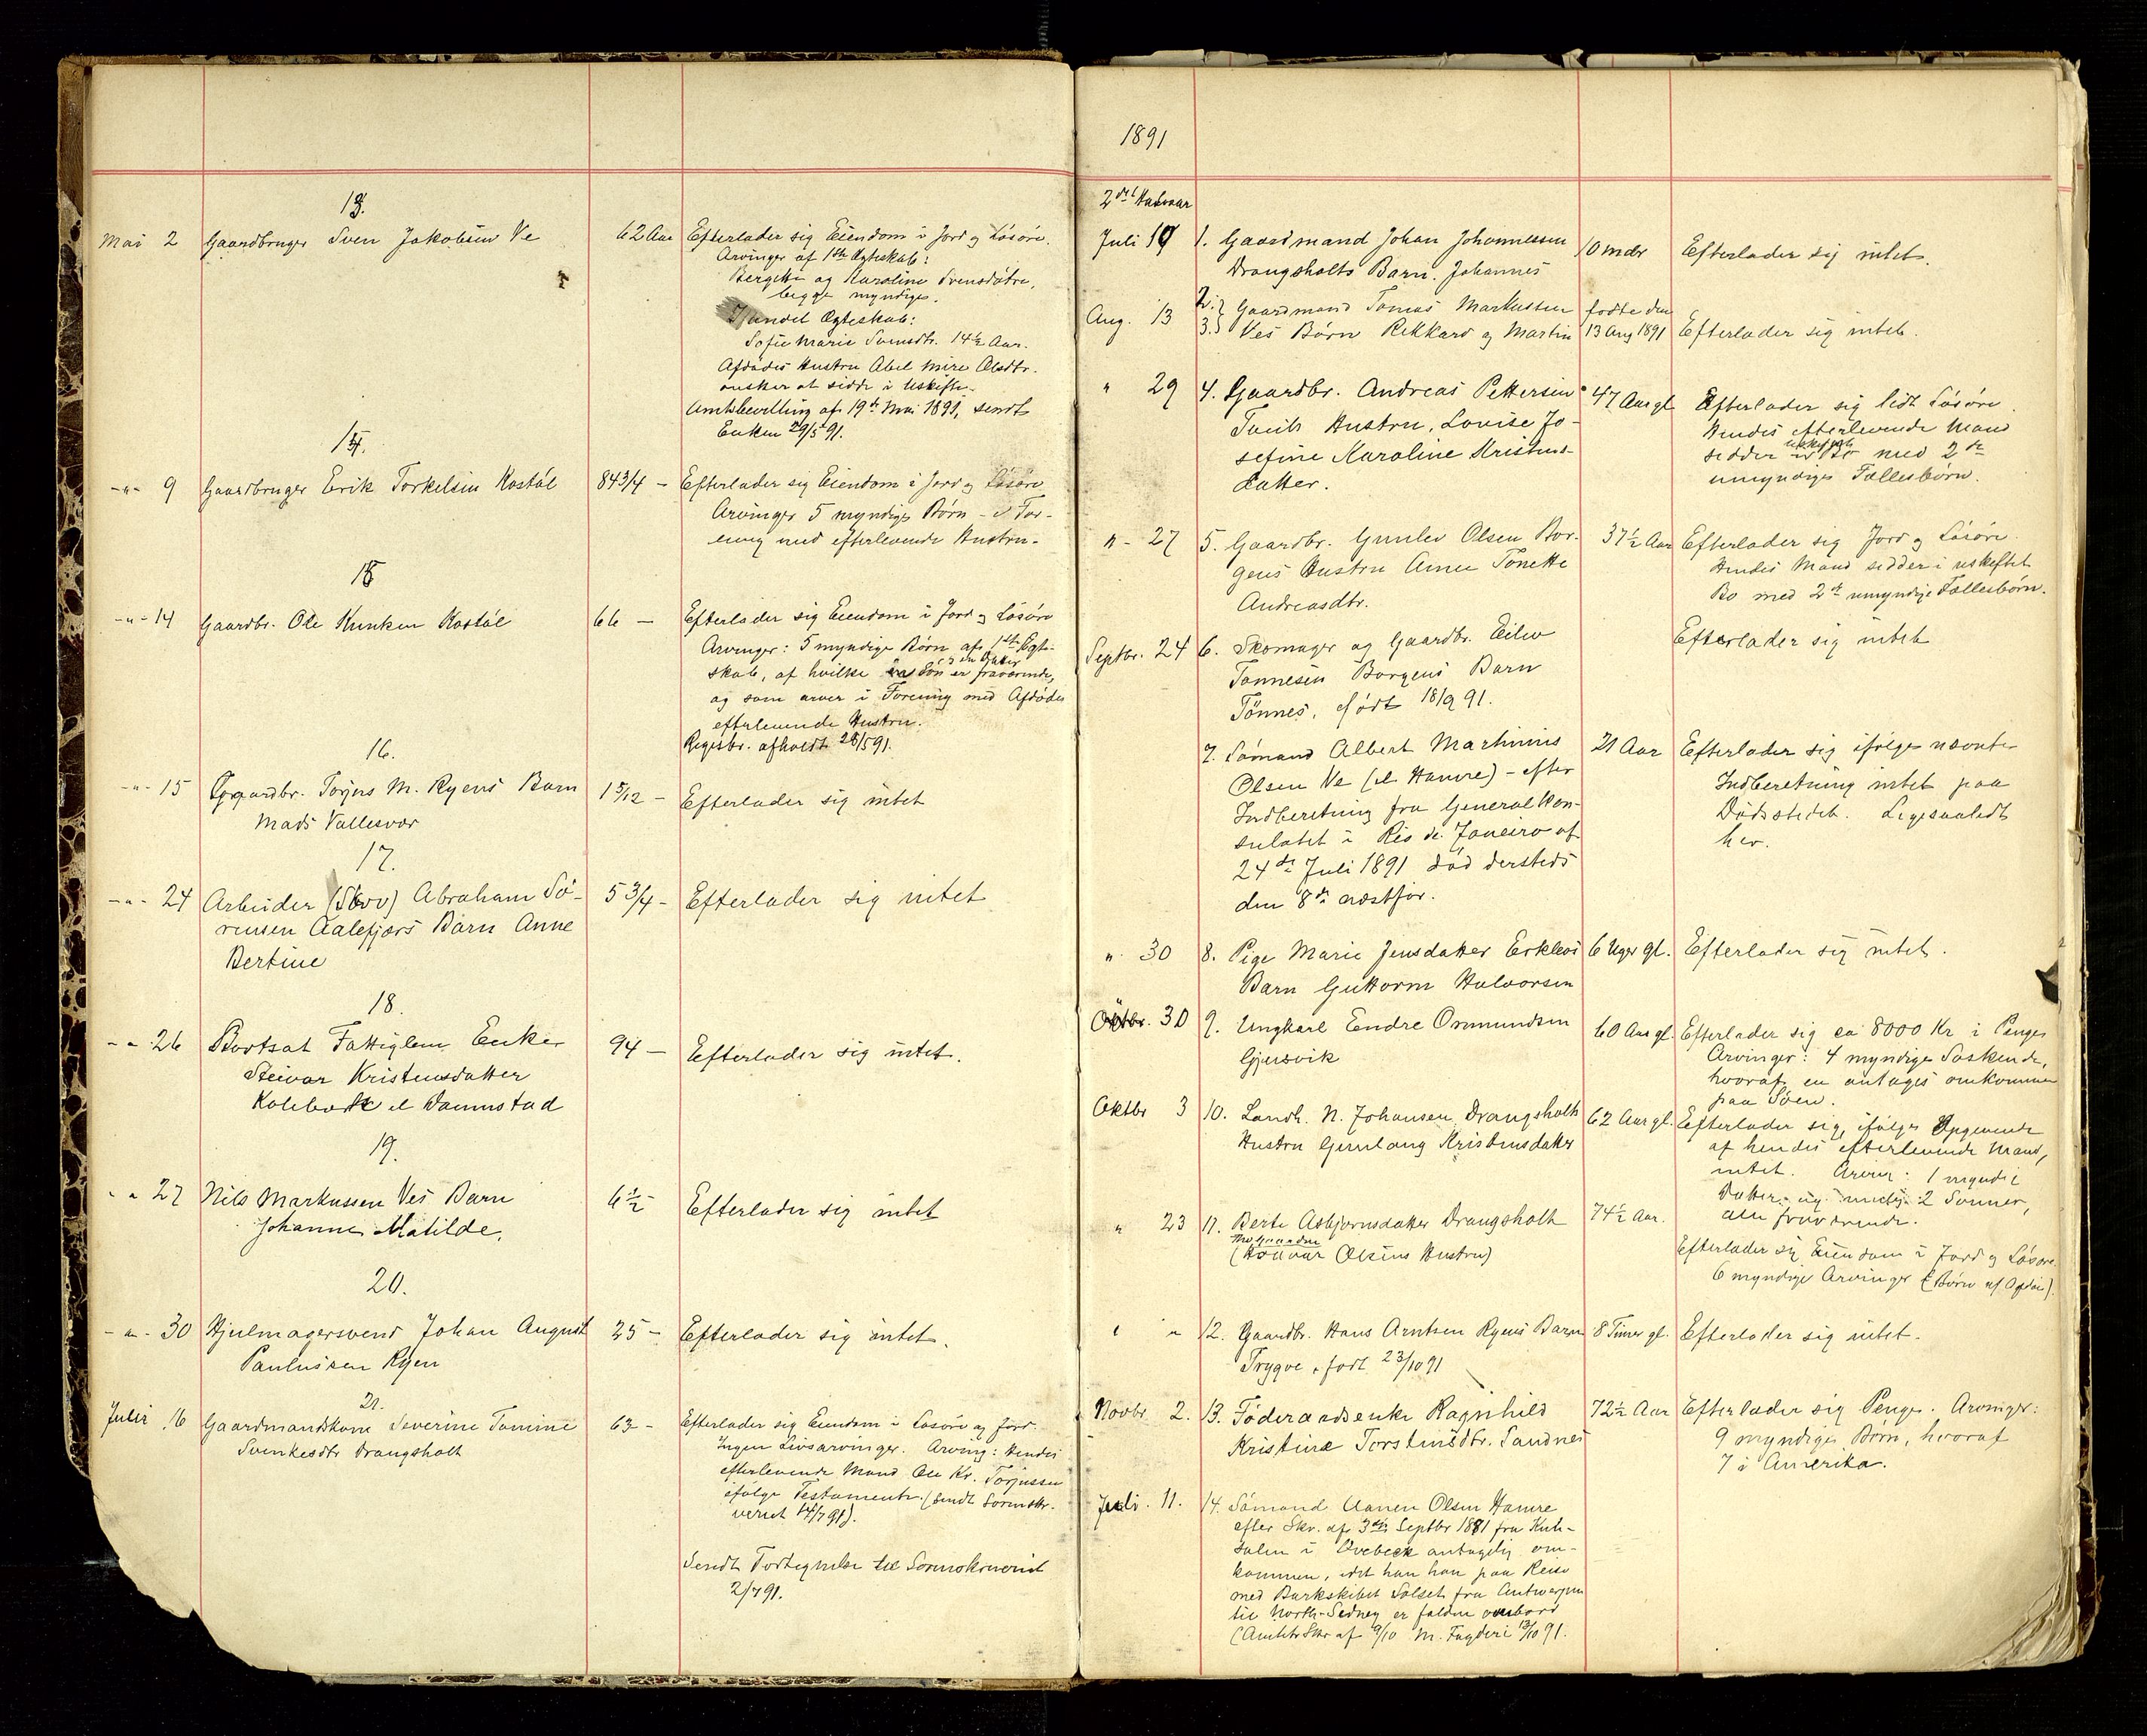 13.
Mai 2 Gaardbruger Sven Jakobsen Ve 62 Aar Efterlader sig Eiendom i Jord og Løsøre.
Arvinger af 1ste Ægteskab:
Bergitte og Karoline Svensdøtre,
begge myndige.
I andet Ægteskab:
Sofie Marie Svensdtr. 14½ Aar.
Afdødes Hustru Abel Mire Olsdtr.
ønsker at sidde i Uskifte.
Amtsbevilling af 19de Mai 1891, sendt
Enken 29/5 91.
14.
-"- 9 Gaardbruger Erik Torkelsen Kostøl 84 3/4 - Efterlader sig Eiendom i Jord og Løsøre
Arvinger 5 myndige Børn - i For-
ening med efterlevende Hustru.
15
-"- 14 Gaardbr. Ole Kunken Kostøl 66 - Efterlader sig Eiendom i Jord og Løsøre
Arvinger: 5 myndige Børn af 1ste Ægte-
skab, af hvilke en Søn er fraværende,
og som arver i Forening med Afdødes
efterlevende Hustru.
Regisbr. afholdt 28/5 91.
16.
-"- 15 Gaardbr. Torjus M. Ryens Barn 1 5/12 - Efterlader sig intet
Mads Vallesvær
17.
-"- 24 Arbeider Abraham Sø- 5 3/4 - Efterlader sig intet
rensen Aalefjærs Barn Anne
Bertine
18.
-"- 26 Bortsat Fattiglem Enke 94 - Efterlader sig intet.
Steivor Kristensdatter
19.
-"- 27 Nils Markussen Ves Barn 6½ - Efterlader sig intet
Johanne Matilde.
20.
-"- 30 Hjulmagersvend Johan August 25 - Efterlader sig intet.
Paulussen Ryen
21.
Juli 16 Gaardmandskone Severine Tomine 63 - Efterlader sig Eiendom i Løsøre og Jord.
Svenkesdtr Drangsholt
Ingen Livsarvinger. Arving: Hendes
efterlevende Mand Ole Kr. Torjussen
ifølge Testamente. (sendt Sorenskr.
veriet 14/7 91).
Sendt Fortegnelse til Sorenskriveriet
2/7 91.
1891
2det Halvaar
Juli 19 1. Gaardmand Johan Johannessen 10 mdr Efterlader sig intet.
Drangsholts Barn. Johannes
Aug. 13 2. Gaardmand Tomas Markussen fødte den
3. Ves Børn Rikkard og Martin 13 Aug 1891 Efterlader sig intet.
" 29 4. Gaardbr. Andreas Pettersen 47 Aar gl. Efterlader sig lidt Løsøre.
Tveits Hustru, Lovise Jo- Hendes efterlevende Mand
sefine Karoline Kristens- sidder i uskiftet Bo med 2de
datter. umyndige Fællesbørn.
" - 27 5. Gaardbr. Gunlev Olsen Bor- 37½ Aar Efterlader sig Jord og Løsøre.
gens Hustru Anne Tonette Hendes Mand sidder i uskiftet
Andreasdtr. Bo med 2de umyndige Fællesbørn.
Septbr. 24 6. Skomager og Gaardbr. Eilev Efterlader sig intet
Tønnesen Borgens Barn
Tønnes, født 18/9 91.
7. Sømand Albert Martinius 21 Aar Efterlader sig ifølge nævnte
Olsen Ve (el Hamre) - efter Indberetning intet paa
Indberetning fra Generalkon- Dødsstedet. Ligesaaledt
sulatet i Rio de Janeiro af her.
24de Juli 1891 død dersteds
den 8de næstfør.
" 30 8. Pige Marie Jensdatter Erkleos 6 Uger gl. Efterlader sig intet.
Barn Guttorm Halvorsen
Oktbr. 30 9. Ungkarl Endre Ormundsen 60 Aar gl. Efterlader sig ca 8000 Kr i Penge
Gjusvik Arvinger: 4 myndige Søskende,
hvoraf en antages omkommen
paa Søen.
Oktbr 3 10. Landh. N. Johansen Drangsholts 62 Aar gl. Efterlader sig, ifølge Opgivende
Hustru Gunlaug Kristensdatter af hendes efterlevende Mand,
intet. Arving: 1 myndig
Datter og 2 Sønner,
alle fraværende.
" 23 11. Berte Asbjørnsdatter Drangsholt 74½ Aar.
(Havar Olsens Hustru) Efterlader sig Eiendom i Jord og Løsøre.
6 myndige Arvinger (Børn af Afdøde).
" " 12. Gaardbr. Hans Arntsen Ryens Barn 8 Timer gl. Efterlader sig intet.
Trygve, født 23/10 91
Novbr. 2. 13. Føderaadsenke Ragnhild 72½ Aar Efterlader sig Penge. Arvinger:
Kristine Torstensdtr. Sandnes 9 myndige Børn, hvoraf
7 i Amerika.
Juli. 11. 14. Sømand Aanen Olsen Hamre
efter Skr. af 3die Septbr 1891 fra Kon-
sulen i Qvebeck antagelig om-
kommen, idet han paa Reise
med Barkskibet Solset fra Antwerpen
til North-Sidney er falden overbord
(Amtets Skr af 9/10 M. Fogderi 13/10 91.